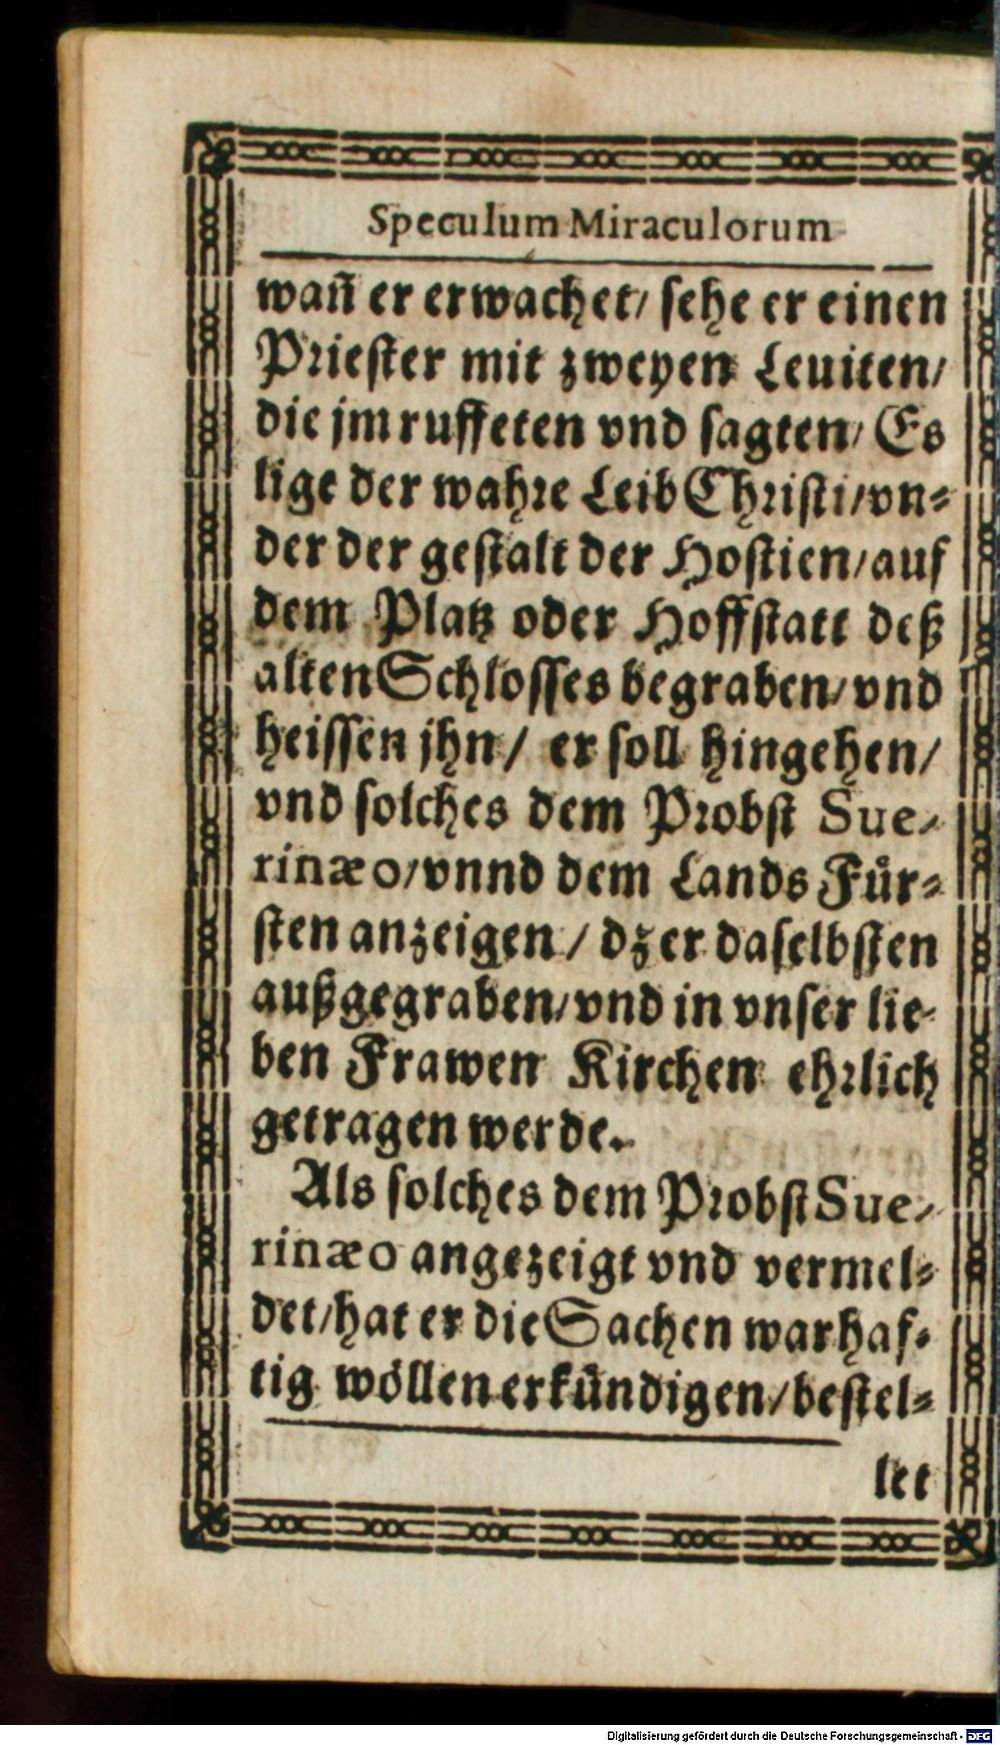 Speculum Miraculorum
wañ er erwachet/ sehe er einen
Priester mit zweyen Leuiten/
die jm ruffeten vnd sagten/ Es
lige der wahre Leib Christi/vn-
der der gestalt der Hostien/auf
dem Platz oder Hoffstatt deß
alten Schlosses begraben/vnd
heissen jhn/ er soll hingehen/
vnd solches dem Probst Sue-
rinæo/vnnd dem Lands Fůr-
sten anzeigen/ dz er daselbsten
außgegraben/vnd in vnser lie-
ben Frawen Kirchen ehrlich
getragen werde.
Als solches dem Probst Sue-
rinæo angezeigt vnd vermel-
det/hat er die Sachen warhaf-
tig wöllen erkůndigen/bestel-
let
Digitalisierung gefördert durch die Deutsche Forschungsgemeinschaft - DFG